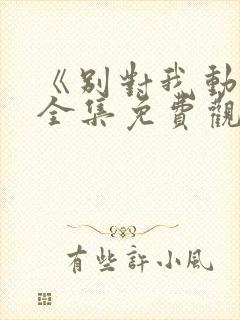 《别對我動
全集免費觀
有些許小風